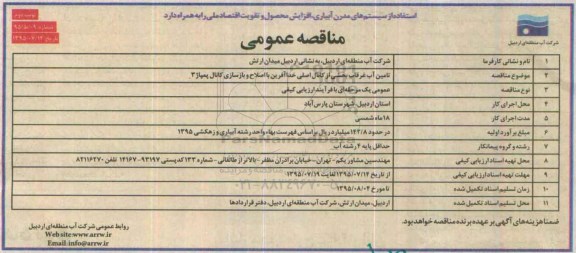 استفاده از سیستم‌های مدرن آبیاری، افزایش محصول و تقویت اقتصاد ملی را به همراه دارد
مناقصه عمومی
شرکت آب منطقه‌ای اردبیل
۱ نام و نشانی کارفرما شرکت آب منطقه‌ای اردبیل، به نشانی اردبیل میدان ارتش
۲ موضوع مناقصه تامین آب غرقاب بخشی از کانال اصلی خداآفرین با اصلاح و بازسازی کانال پمپاژ ۳
۳ نوع مناقصه عمومی یک مرحله‌ای با فرآیند ارزیابی کیفی
۴ محل اجرای کار استان اردبیل، شهرستان پارس‌آباد
۵ مدت اجرای کار ۱۸ ماه شمسی
۶ مبلغ برآورد اولیه در حدود ۱۴۳/۸ میلیارد ریال براساس فهرست بهاء واحد رشته آبیاری و زهکشی ۱۳۹۵
۷ رشته و گروه پیمانکار حداقل پایه ۴ رشته آب
۸ محل تهیه اسناد ارزیابی کیفی مهندسین مشاور یکم - تهران - خیابان برادران مظفر - بالاتر از طالقانی - شماره ۱۳۳ کدپستی ۹۳۱۹۷-۱۴۱۶۷ تلفن ۸۲۱۱۶۲۷۰
۹ مهلت تهیه اسناد ارزیابی کیفی از تاریخ ۱۳۹۵/۰۷/۱۴ لغایت ۱۳۹۵/۰۷/۱۹
۱۰ زمان تسلیم اسناد تکمیل شده تا مورخ ۱۳۹۵/۰۸/۰۴
۱۱ محل تسلیم اسناد تکمیل شده اردبیل، میدان ارتش، شرکت آب منطقه‌ای اردبیل، دفتر قراردادها
ضمنا هزینه‌های آگهی بر عهده برنده مناقصه خواهد بود.
روابط عمومی شرکت آب منطقه‌ای اردبیل
Website:www.arrw.ir
Email:info@arrw.ir